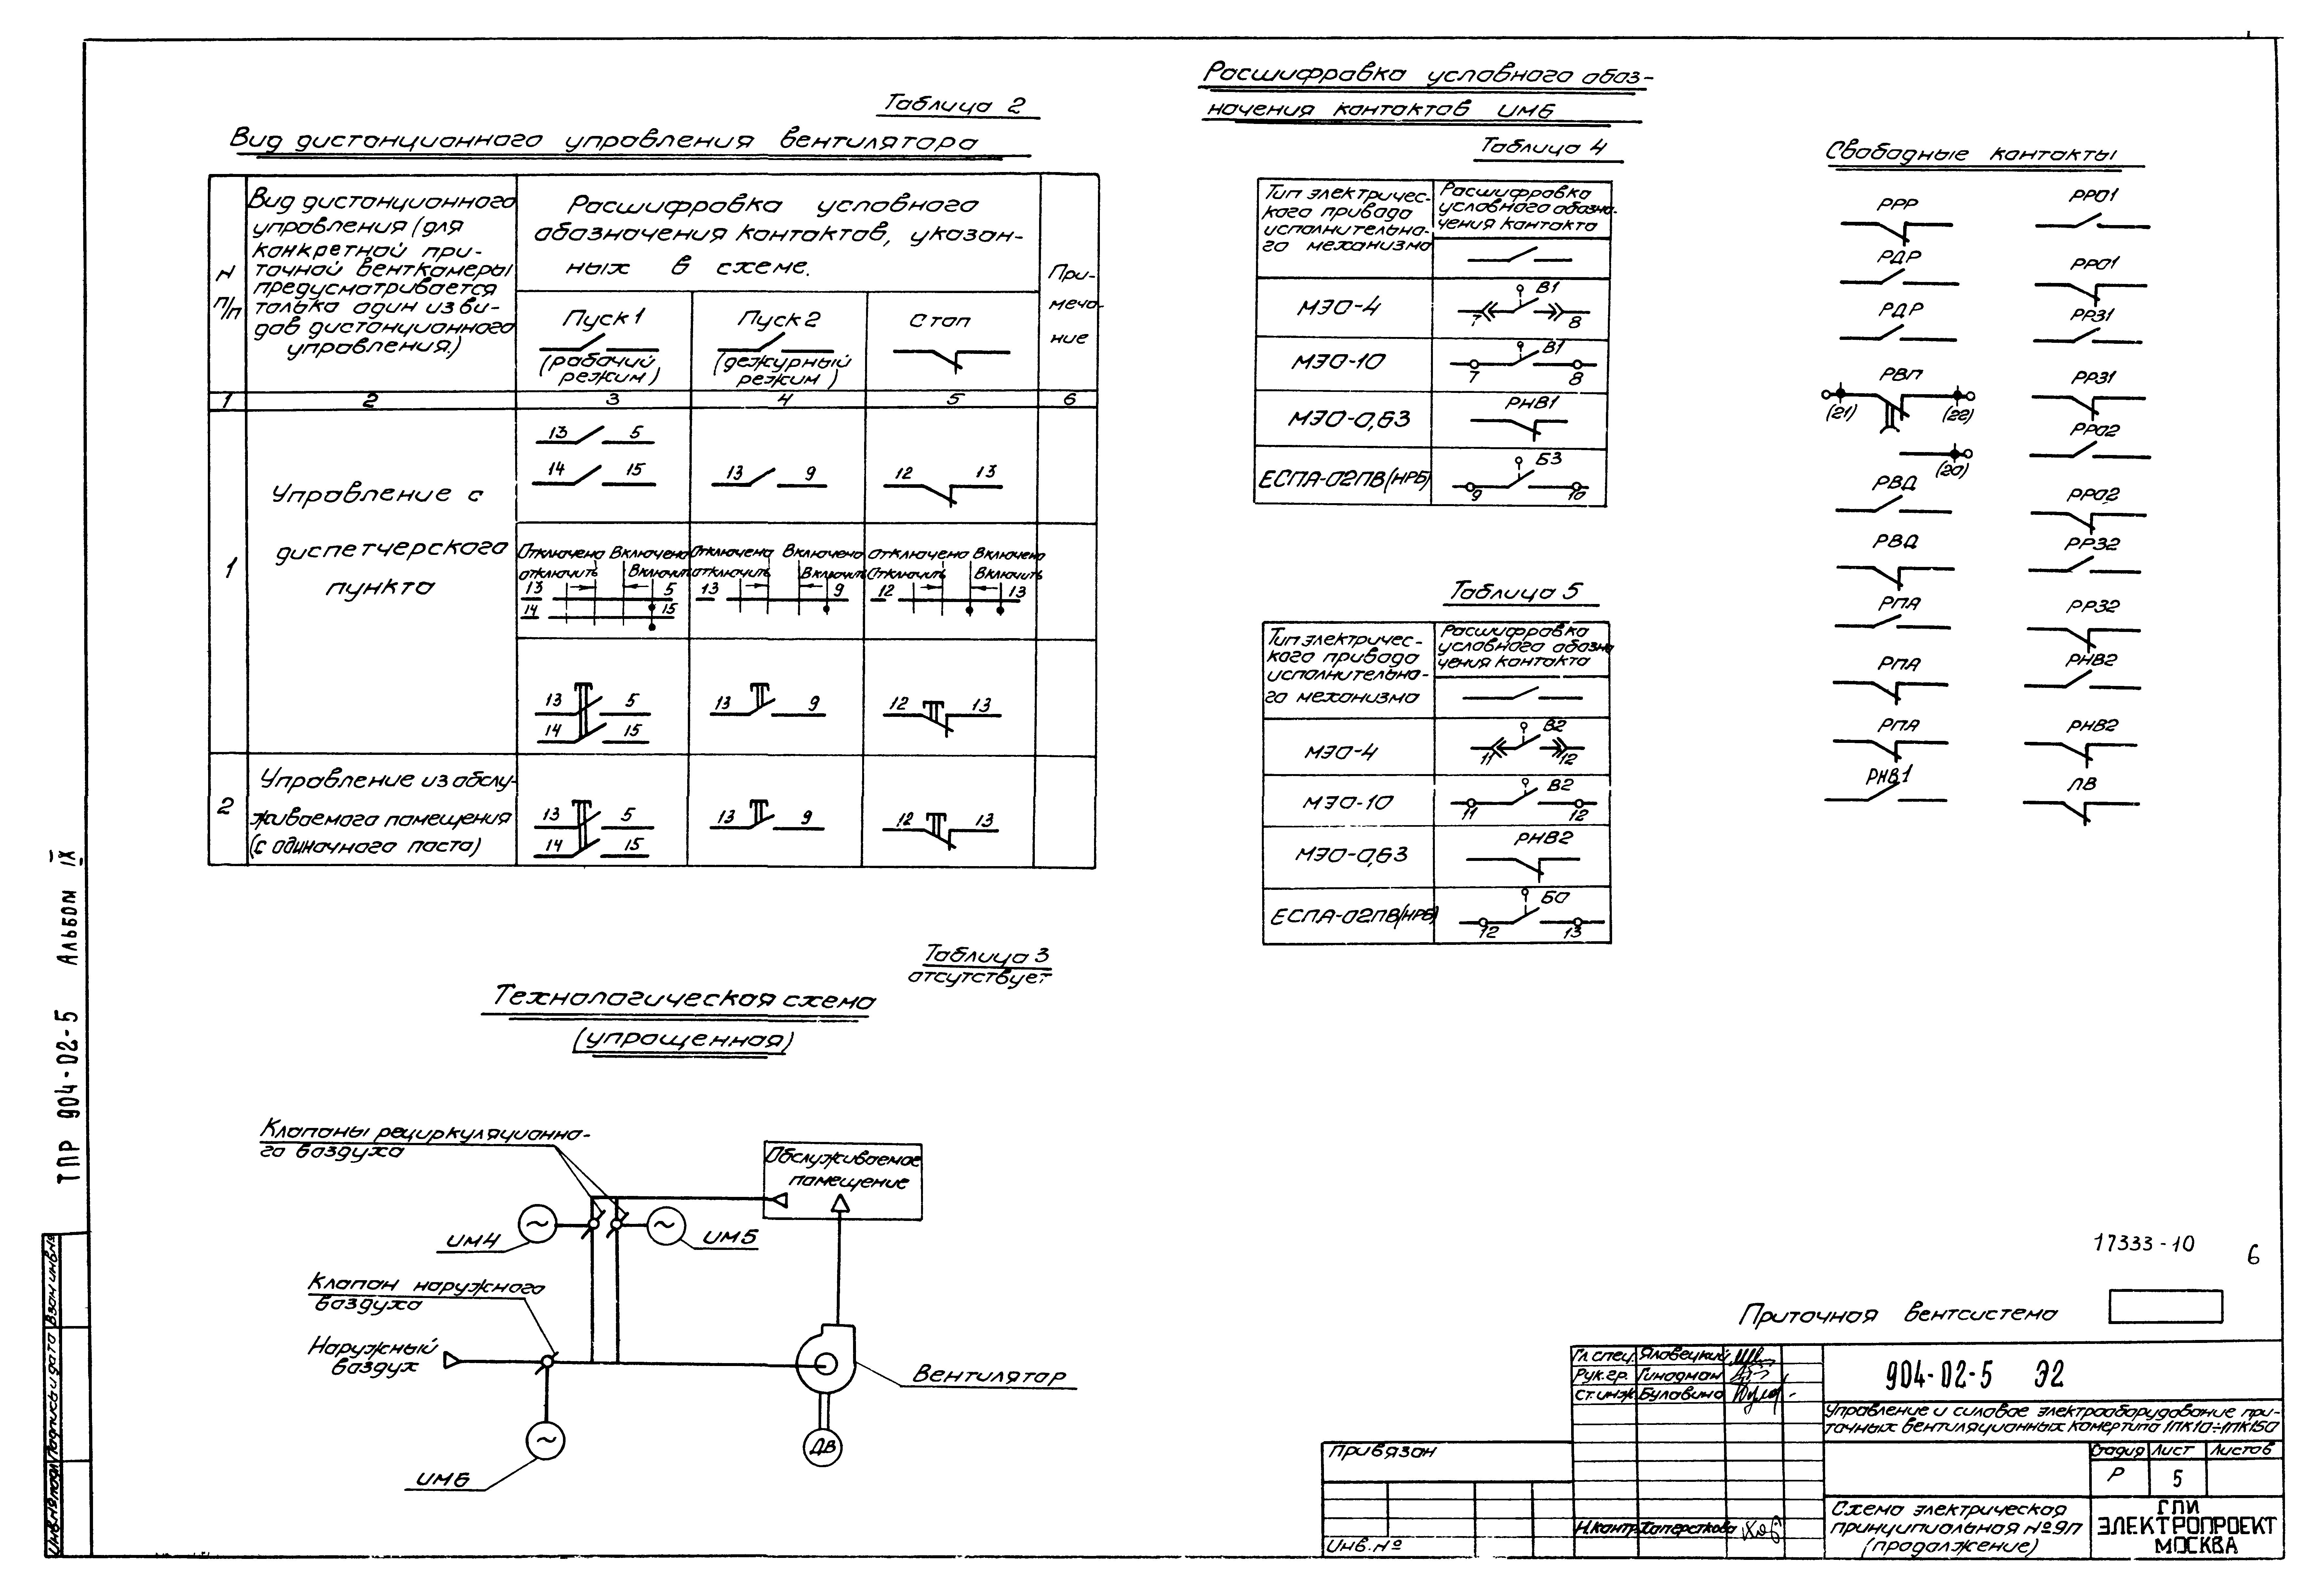 Таблица 2
Вид дистанционного управления вентилятора
N п/п
Вид дистанционного
управления (для
конкретной при-
точной венткамеры
предусматривается
только один из ви-
дов дистанционного
управления.)
Расшифровка условного
обозначения контактов, указан-
ных в схеме.
При-
меча-
ние
Пуск 1
(рабочий
режим)
Пуск 2
(дежурный
режим)
Стоп
1 2 3 4 5 6
1
Управление с
диспетчерского
пункта
13 5
14 15
13 9
12 13
Отключено Включено
отключить Включить
13 5
14 15
Отключено Включено
отключить Включить
13 9
отключено Включено
Отключить Включить
12 13
13 5
14 15
13 9
12 13
2
Управление из обслу-
живаемого помещения
(с одиночного поста)
13 5
14 15
13 9
12 13
Таблица 3
отсутствует
Технологическая схема
(упрощенная)
Клапаны рециркуляционно-
го воздуха
Обслуживаемое
помещение
ИМ4
ИМ5
Клапан наружного
воздуха
Наружный
воздух
Вентилятор
ДВ
ИМ6
Расшифровка условного обоз-
начения контактов ИМ6
Таблица 4
Тип электричес-
кого привода
исполнительно-
го механизма
Расшифровка
условного обозна-
чения контакта
МЭО-4
В1
7 8
МЭО-10
В1
7 8
МЭО-0,63
РНВ1
ЕСПА-02ПВ(НРБ)
Б3
9 10
Таблица 5
Тип электричес-
кого привода
исполнительно-
го механизма
Расшифровка
условного обозна
чения контакта
МЭО-4
В2
11 12
МЭО-10
В2
11 12
МЭО-0,63
РНВ2
ЕСПА-02ПВ(НРБ)
БО
12 13
Свободные контакты
РРР
РДР
РДР
РВП
(21) (22)
(20)
РВД
РВД
РПА
РПА
РПА
РНВ1
РРО1
РРО1
РРЗ1
РРЗ1
РРО2
РРО2
РРЗ2
РРЗ2
РНВ2
РНВ2
ЛВ
17333-10
6
Приточная вентсистема
Гл. спец. Яловецкий
Рук. гр. Гинодман
Ст. инж. Булавина
Н.контр. Хаперсткова
904-02-5 Э2
Управление и силовое электрооборудование при-
точных вентиляционных камер типа 1ПК10÷1ПК150
Стадия Лист Листов
Р 5
Схема электрическая
принципиальная №9П
(продолжение)
ГПИ
ЭЛЕКТРОПРОЕКТ
МОСКВА
Привязан
Инв. №
ТПР 904-02-5 Альбом IX
Взам инв №
Подпись и дата
Инв.№ подл.